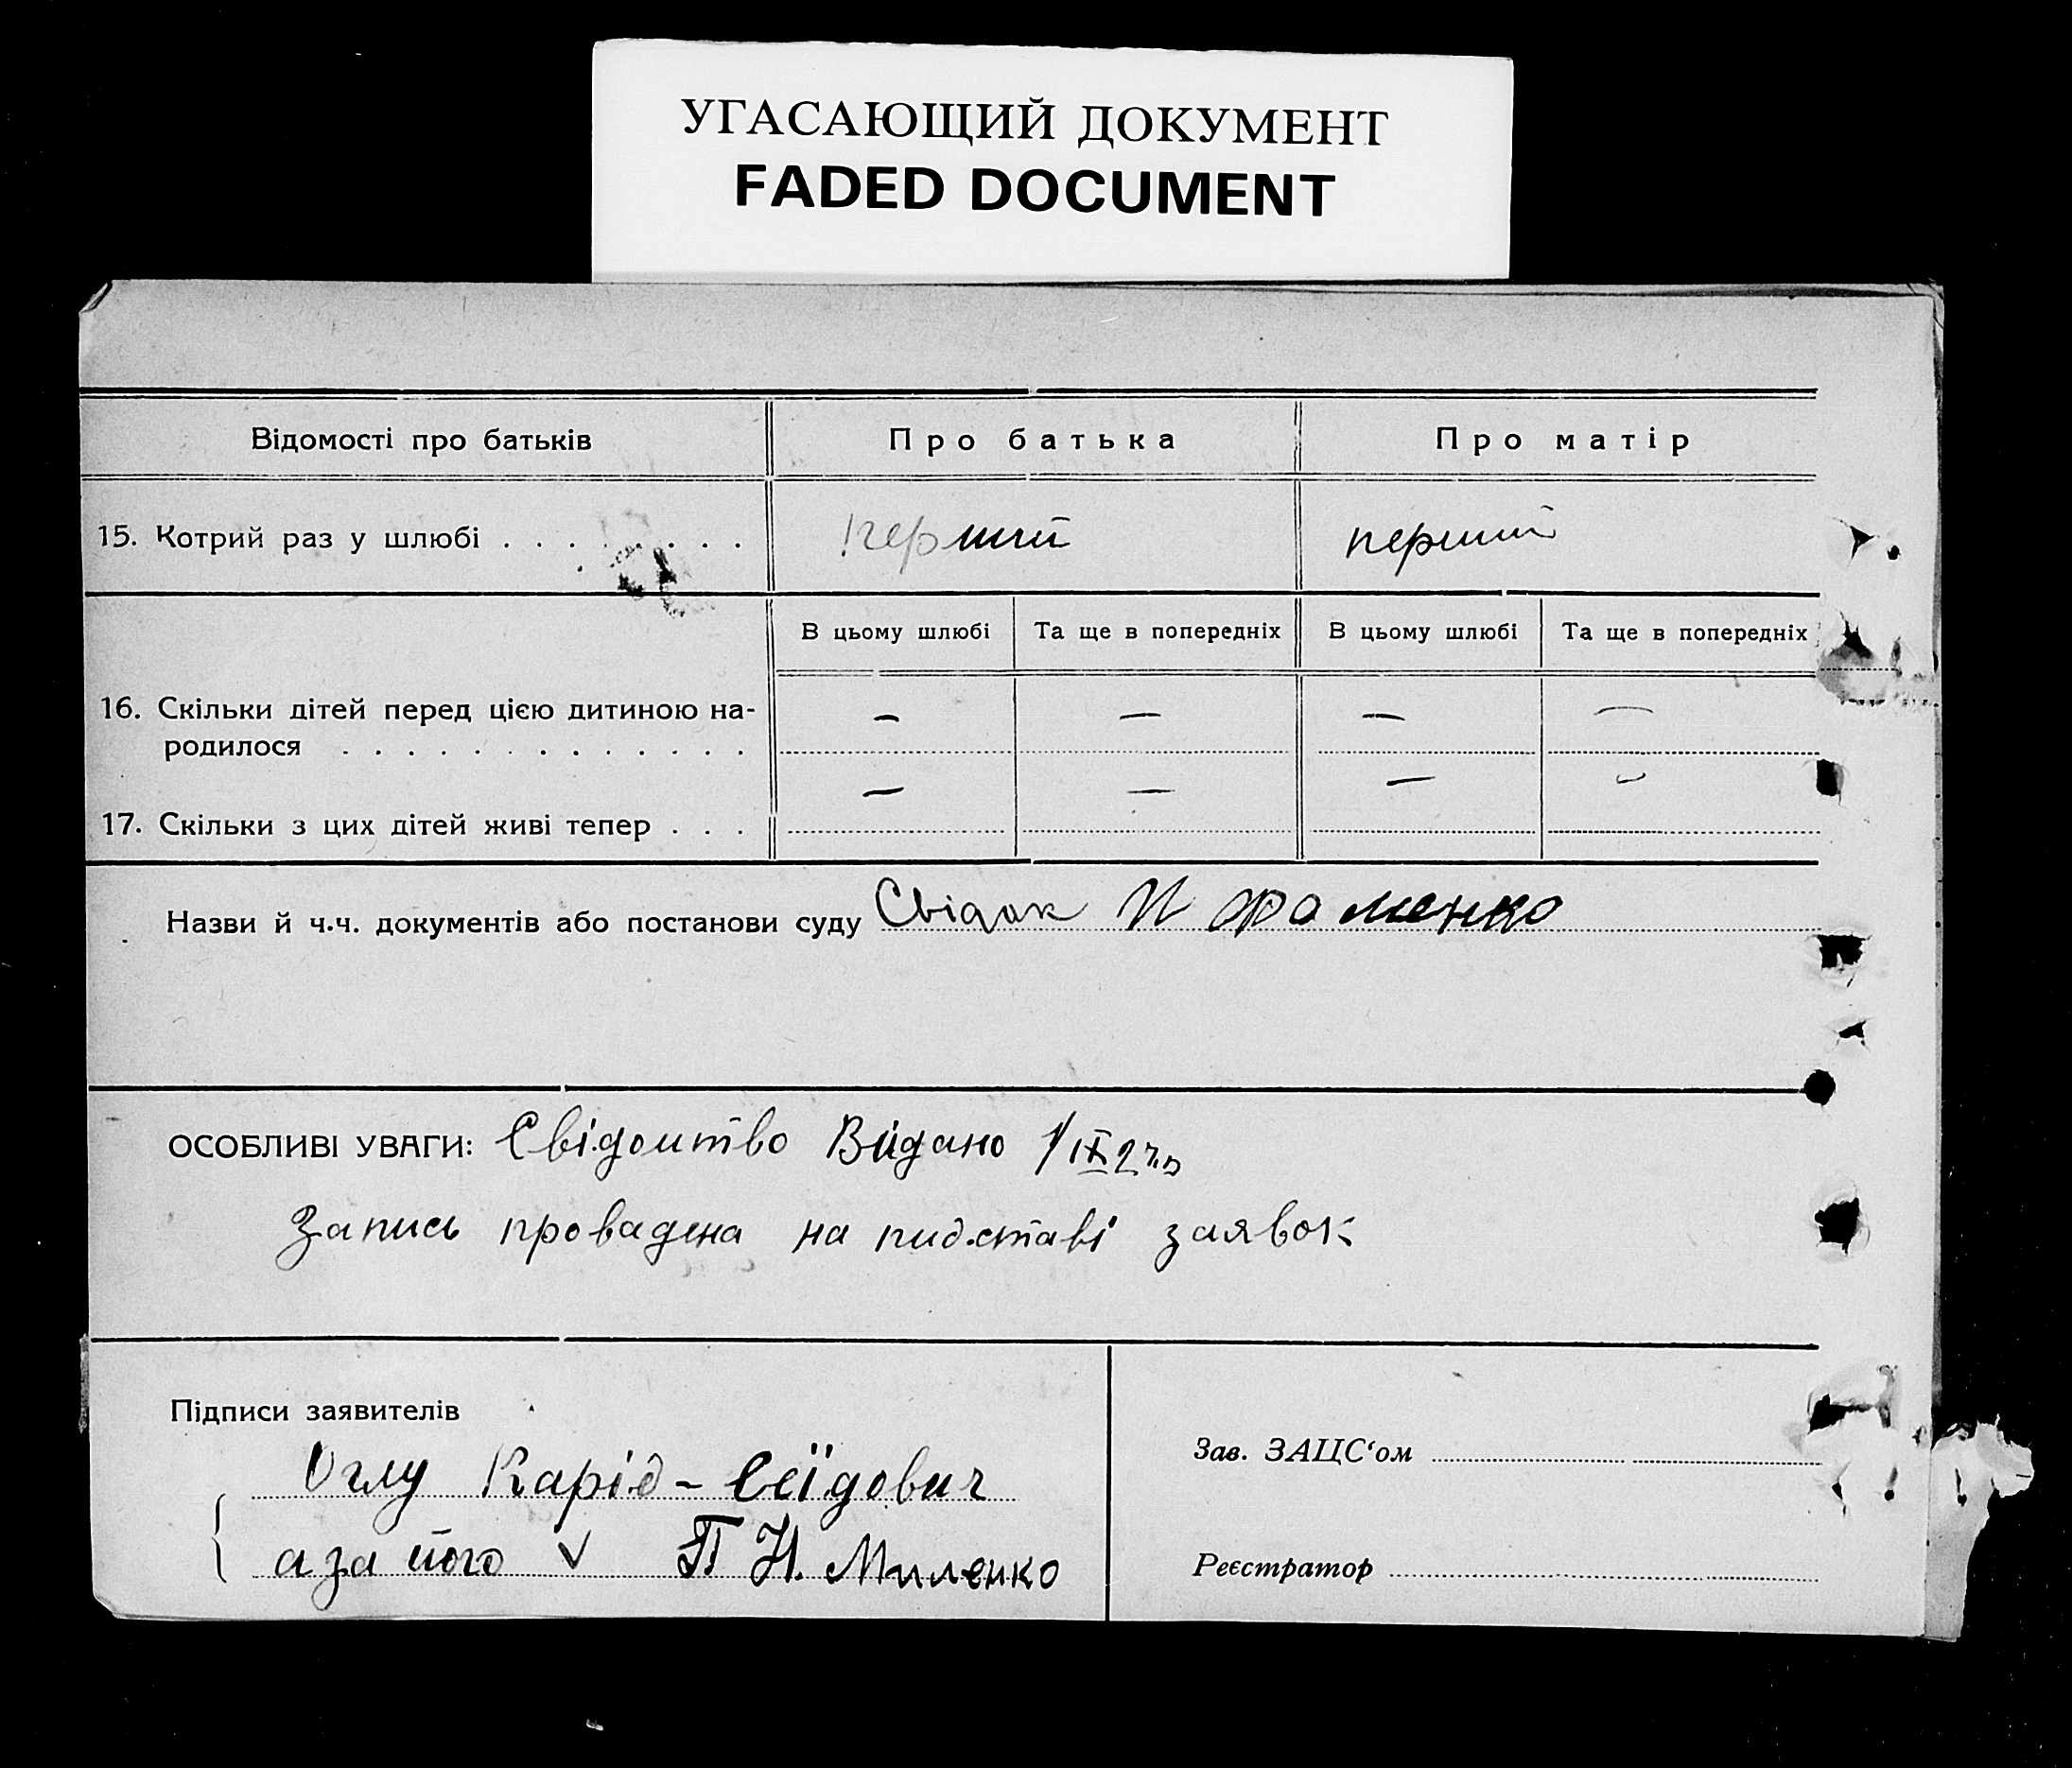 УГАСАЮЩИЙ ДОКУМЕНТ
FADED DOCUMENT
Відомості про батьків
Про батька
Про матір
15. Котрий раз у шлюбі . . . . . . . .
перший
перший
В цьому шлюбі
Та ще в попередніх
В цьому шлюбі
Та ще в попередніх
16. Скільки дітей перед цією дитиною на-
— — — —
родилося . . . . . . . . . . . . .
17. Скільки з цих дітей живі тепер . . .
— — — —
Назви й ч.ч. документів або постанови суду Свідок И Фоменко
ОСОБЛИВІ УВАГИ: Свідоцтво Видано 1/IX
Запись провадена на пидставі заявок
Підписи заявителів
Оглу Карід - Сеїдович
а за його V П Н. Миленко
Зав. ЗАЦС‘ом
Реєстратор